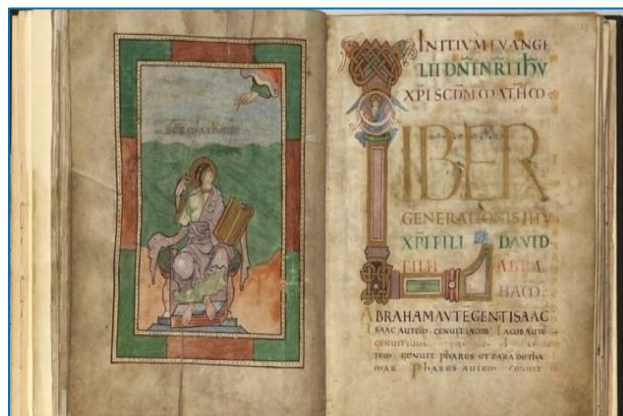 INITIVM EVANGE
LII DNI NRI IHV
XPI SCDM MATHM
LIBER
GENERATIONIS IHV
XPI FILI DAVID
FILII ABRA
HAM
ABRAHAM AVTE GENT ISAAC
ISAAC AUTEM GENUIT IACOB IACOB AUTE
GENUIT
TEM GENUIT PHARES ET ZARA DE THA
MAR PHARES AUTEM GENUIT